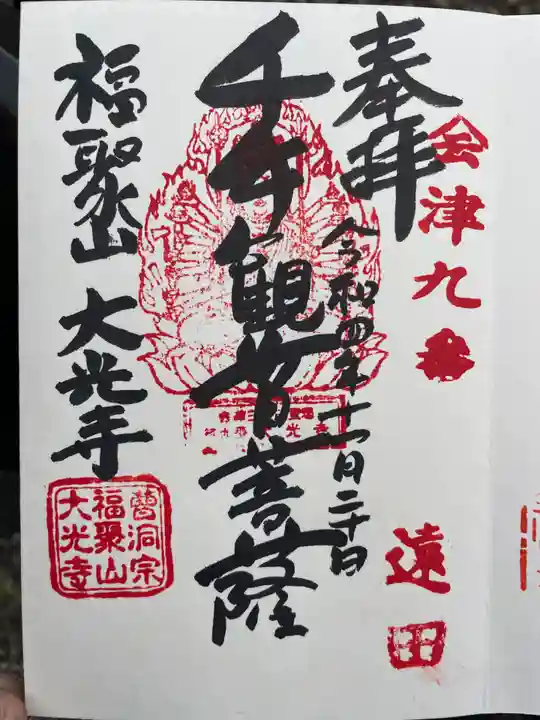 会津九番
遠田
奉拝
令和四年十一月二十日
千手観音菩薩
福聚山 大光寺
曹洞宗
福聚山
大光寺